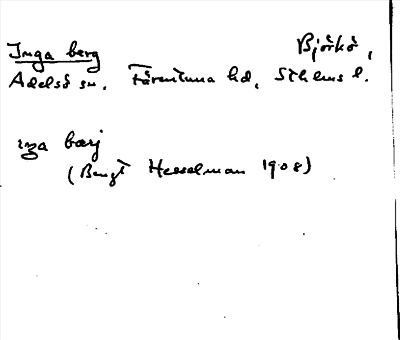 Inga berg Björkö,
Adelsö sn. Färentuna hd, Sthlms l.
iŋa bærj
(Bengt Hesselman 1908)